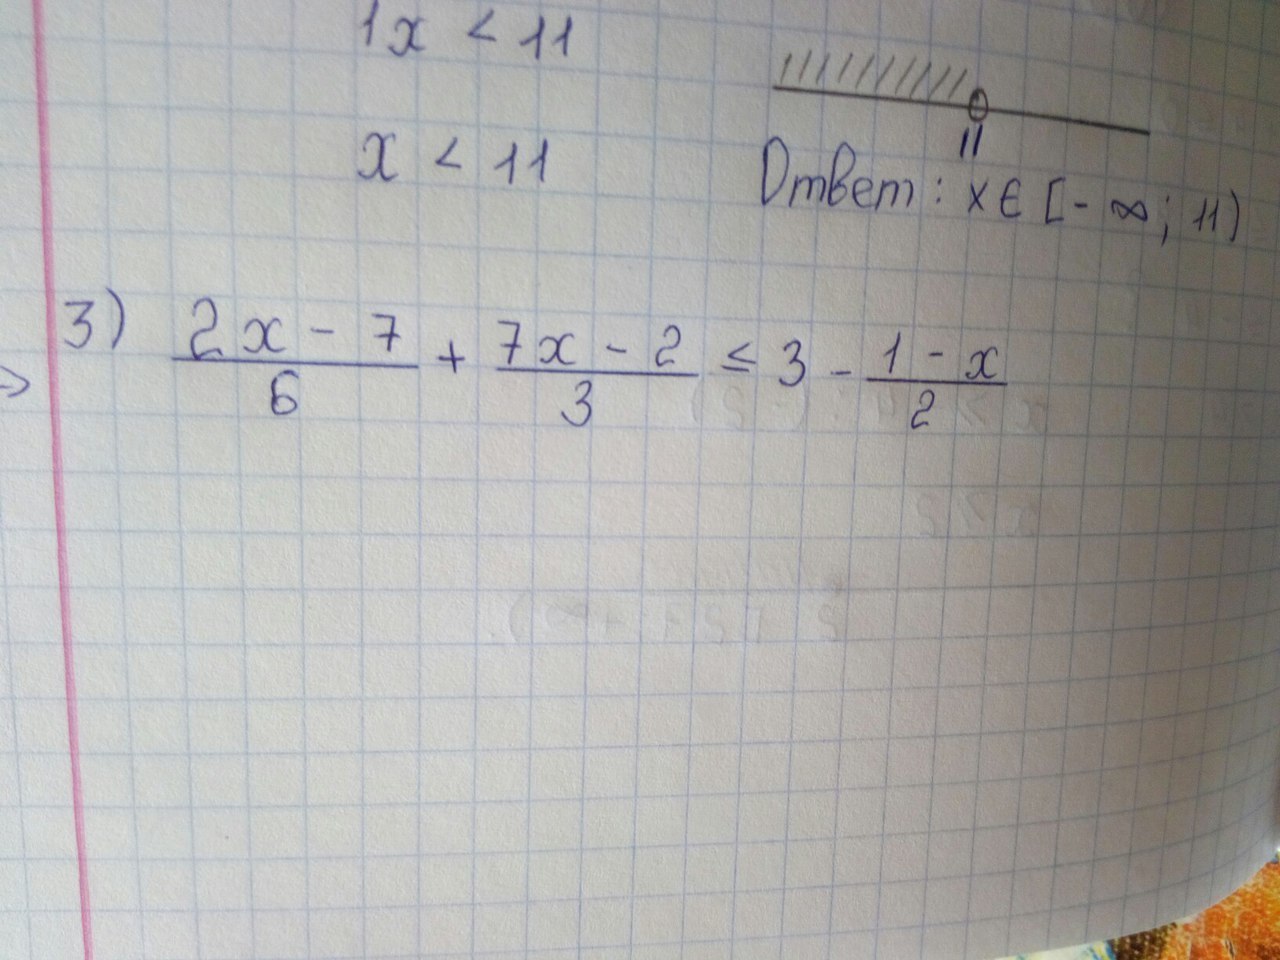 1x < 11
x < 11
11
Ответ: x ∈ [-∞; 11)
3) (2x - 7)/6 + (7x - 2)/3 ≤ 3 - (1 - x)/2